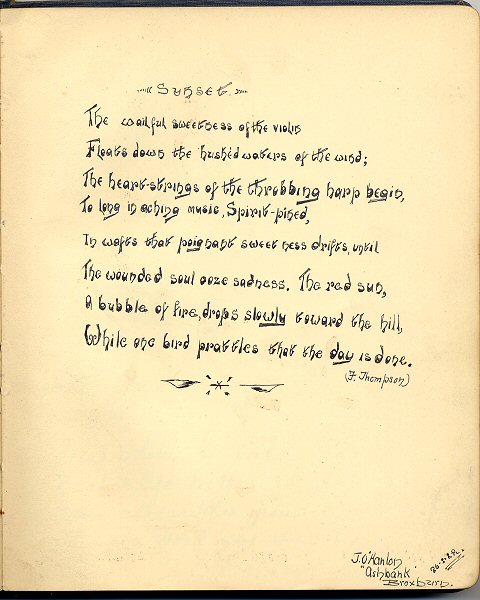 Sunset.
The wailful sweetness of the violin
Floats down the hushèd waters of the wind;
The heart-strings of the throbbing harp begin,
To long in aching music, Spirit-pined,
In wafts that poignant sweetness drifts, until
The wounded soul ooze sadness. The red sun,
A bubble of fire, drops slowly toward the hill,
While one bird prattles that the day is done.
(F. Thompson)
J. O'Hanlon
"Ashbank"
Broxburn.